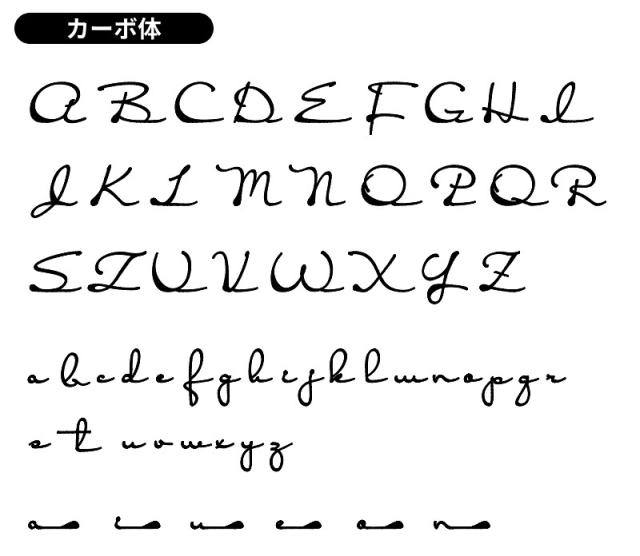 カーボ体
A B C D E F G H I
J K L M N O P Q R
S T U V W X Y Z
a b c d e f g h i j k l m n o p q r
s t u v w x y z
a i u e o n